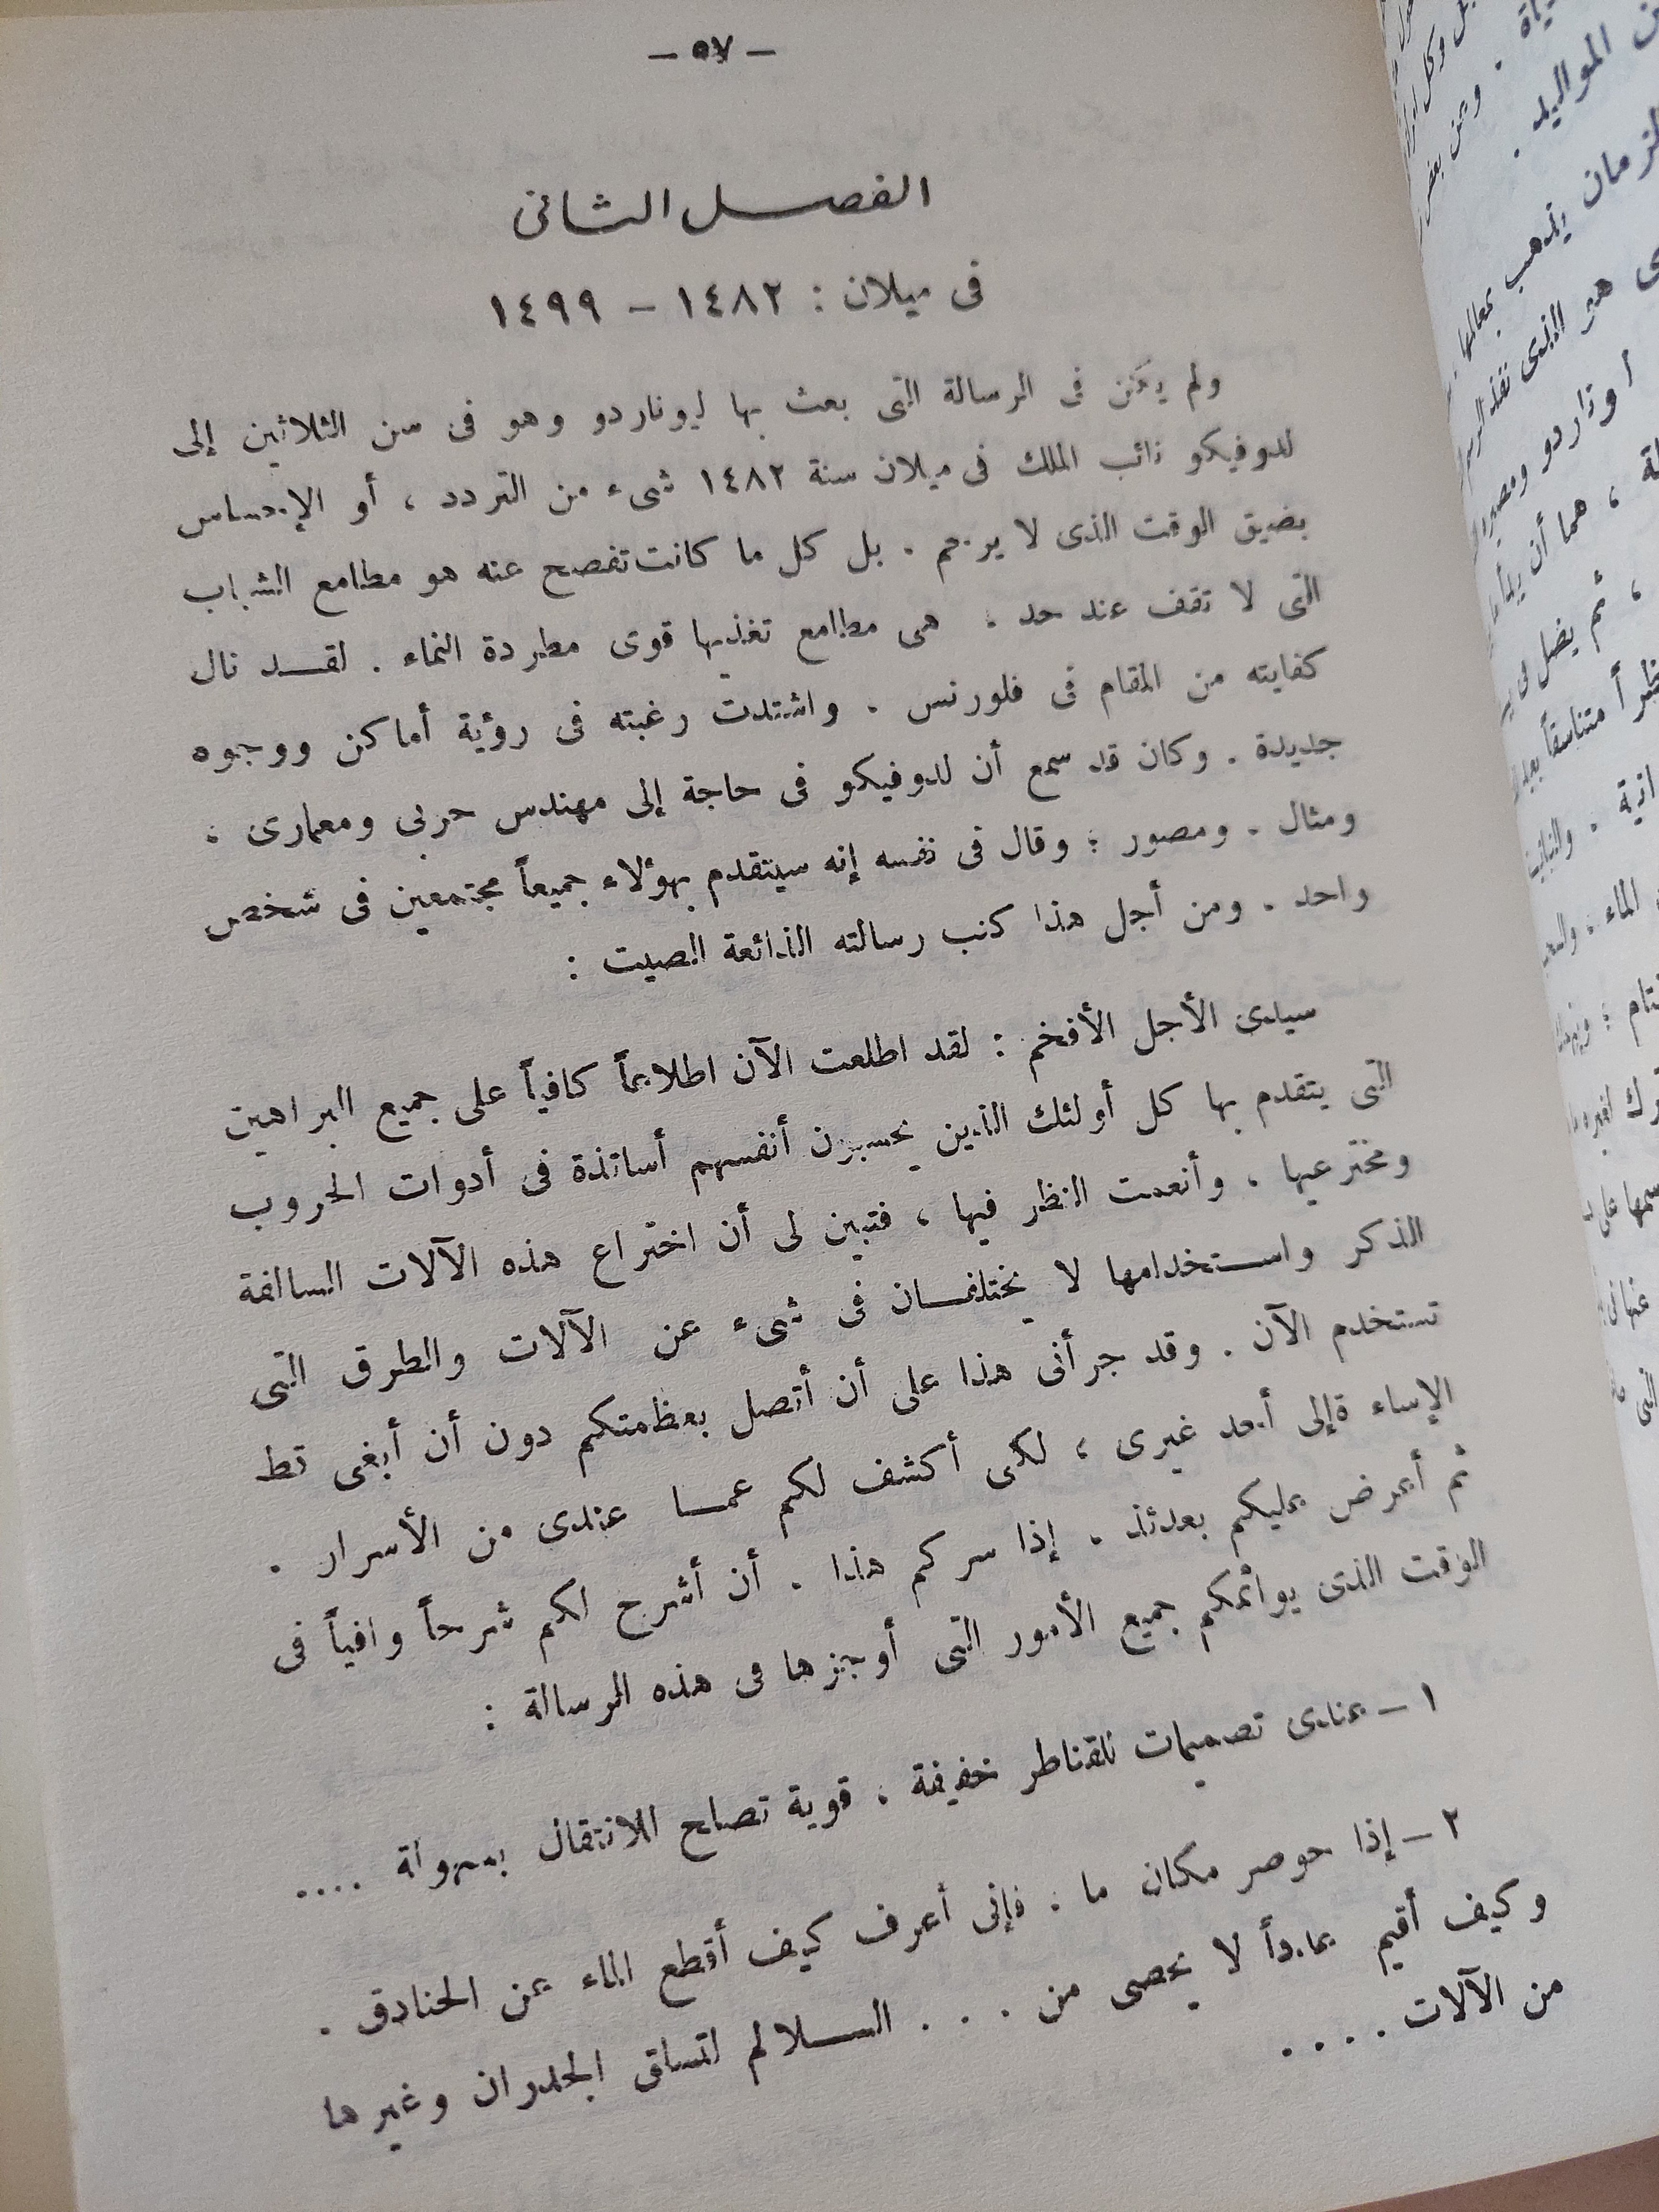 — ٥٧ —
الفصل الثانى
فى ميلان : ١٤٨٢ – ١٤٩٩
ولم يكن فى الرسالة التى بعث بها ليوناردو وهو فى سن الثلاثين إلى
لدوفيكو نائب الملك فى ميلان سنة ١٤٨٢ شىء من التردد ، أو الإحساس
بضيق الوقت الذى لا يرحم . بل كل ما كانت تفصح عنه هو مطامع الشباب
التى لا تقف عند حد . هى مطامع تغذيها قوى مطردة النماء . لقد نال
كفايته من المقام فى فلورنس . واشتدت رغبته فى رؤية أماكن ووجوه
جديدة . وكان قد سمع أن لدوفيكو فى حاجة إلى مهندس حربى ومعمارى ،
ومثال . ومصور ؛ وقال فى نفسه إنه سيتقدم بهؤلاء جميعاً مجتمعين فى شخص
واحد . ومن أجل هذا كتب رسالته الذائعة الصيت :
سيدى الأجل الأفخم : لقد اطلعت الآن اطلاعاً كافياً على جميع البراهين
التى يتقدم بها كل أولئك الذين يحسبون أنفسهم أساتذة فى أدوات الحروب
ومخترعيها ، وأنعمت النظر فيها ، فتبين لى أن اختراع هذه الآلات السالفة
الذكر واستخدامها لا يختلفان فى شىء عن الآلات والطرق التى
تستخدم الآن . وقد جرأنى هذا على أن أتصل بعظمتكم دون أن أبغى قط
الإساء ةإلى أحد غيرى ، لكى أكشف لكم عما عندى من الأسرار .
ثم أعرض عليكم بعدئذ . إذا سركم هذا . أن أشرح لكم شرحاً وافياً فى
الوقت الذى يوائمكم جميع الأمور التى أوجزها فى هذه الرسالة :
١ – عندى تصميمات لقناطر خفيفة ، قوية تصلح للانتقال بسهولة ....
٢ – إذا حوصر مكان ما . فإنى أعرف كيف أقطع الماء عن الخنادق .
وكيف أقيم عدداً لا يحصى من . . . السلالم لتسلق الجدران وغيرها
من الآلات ....